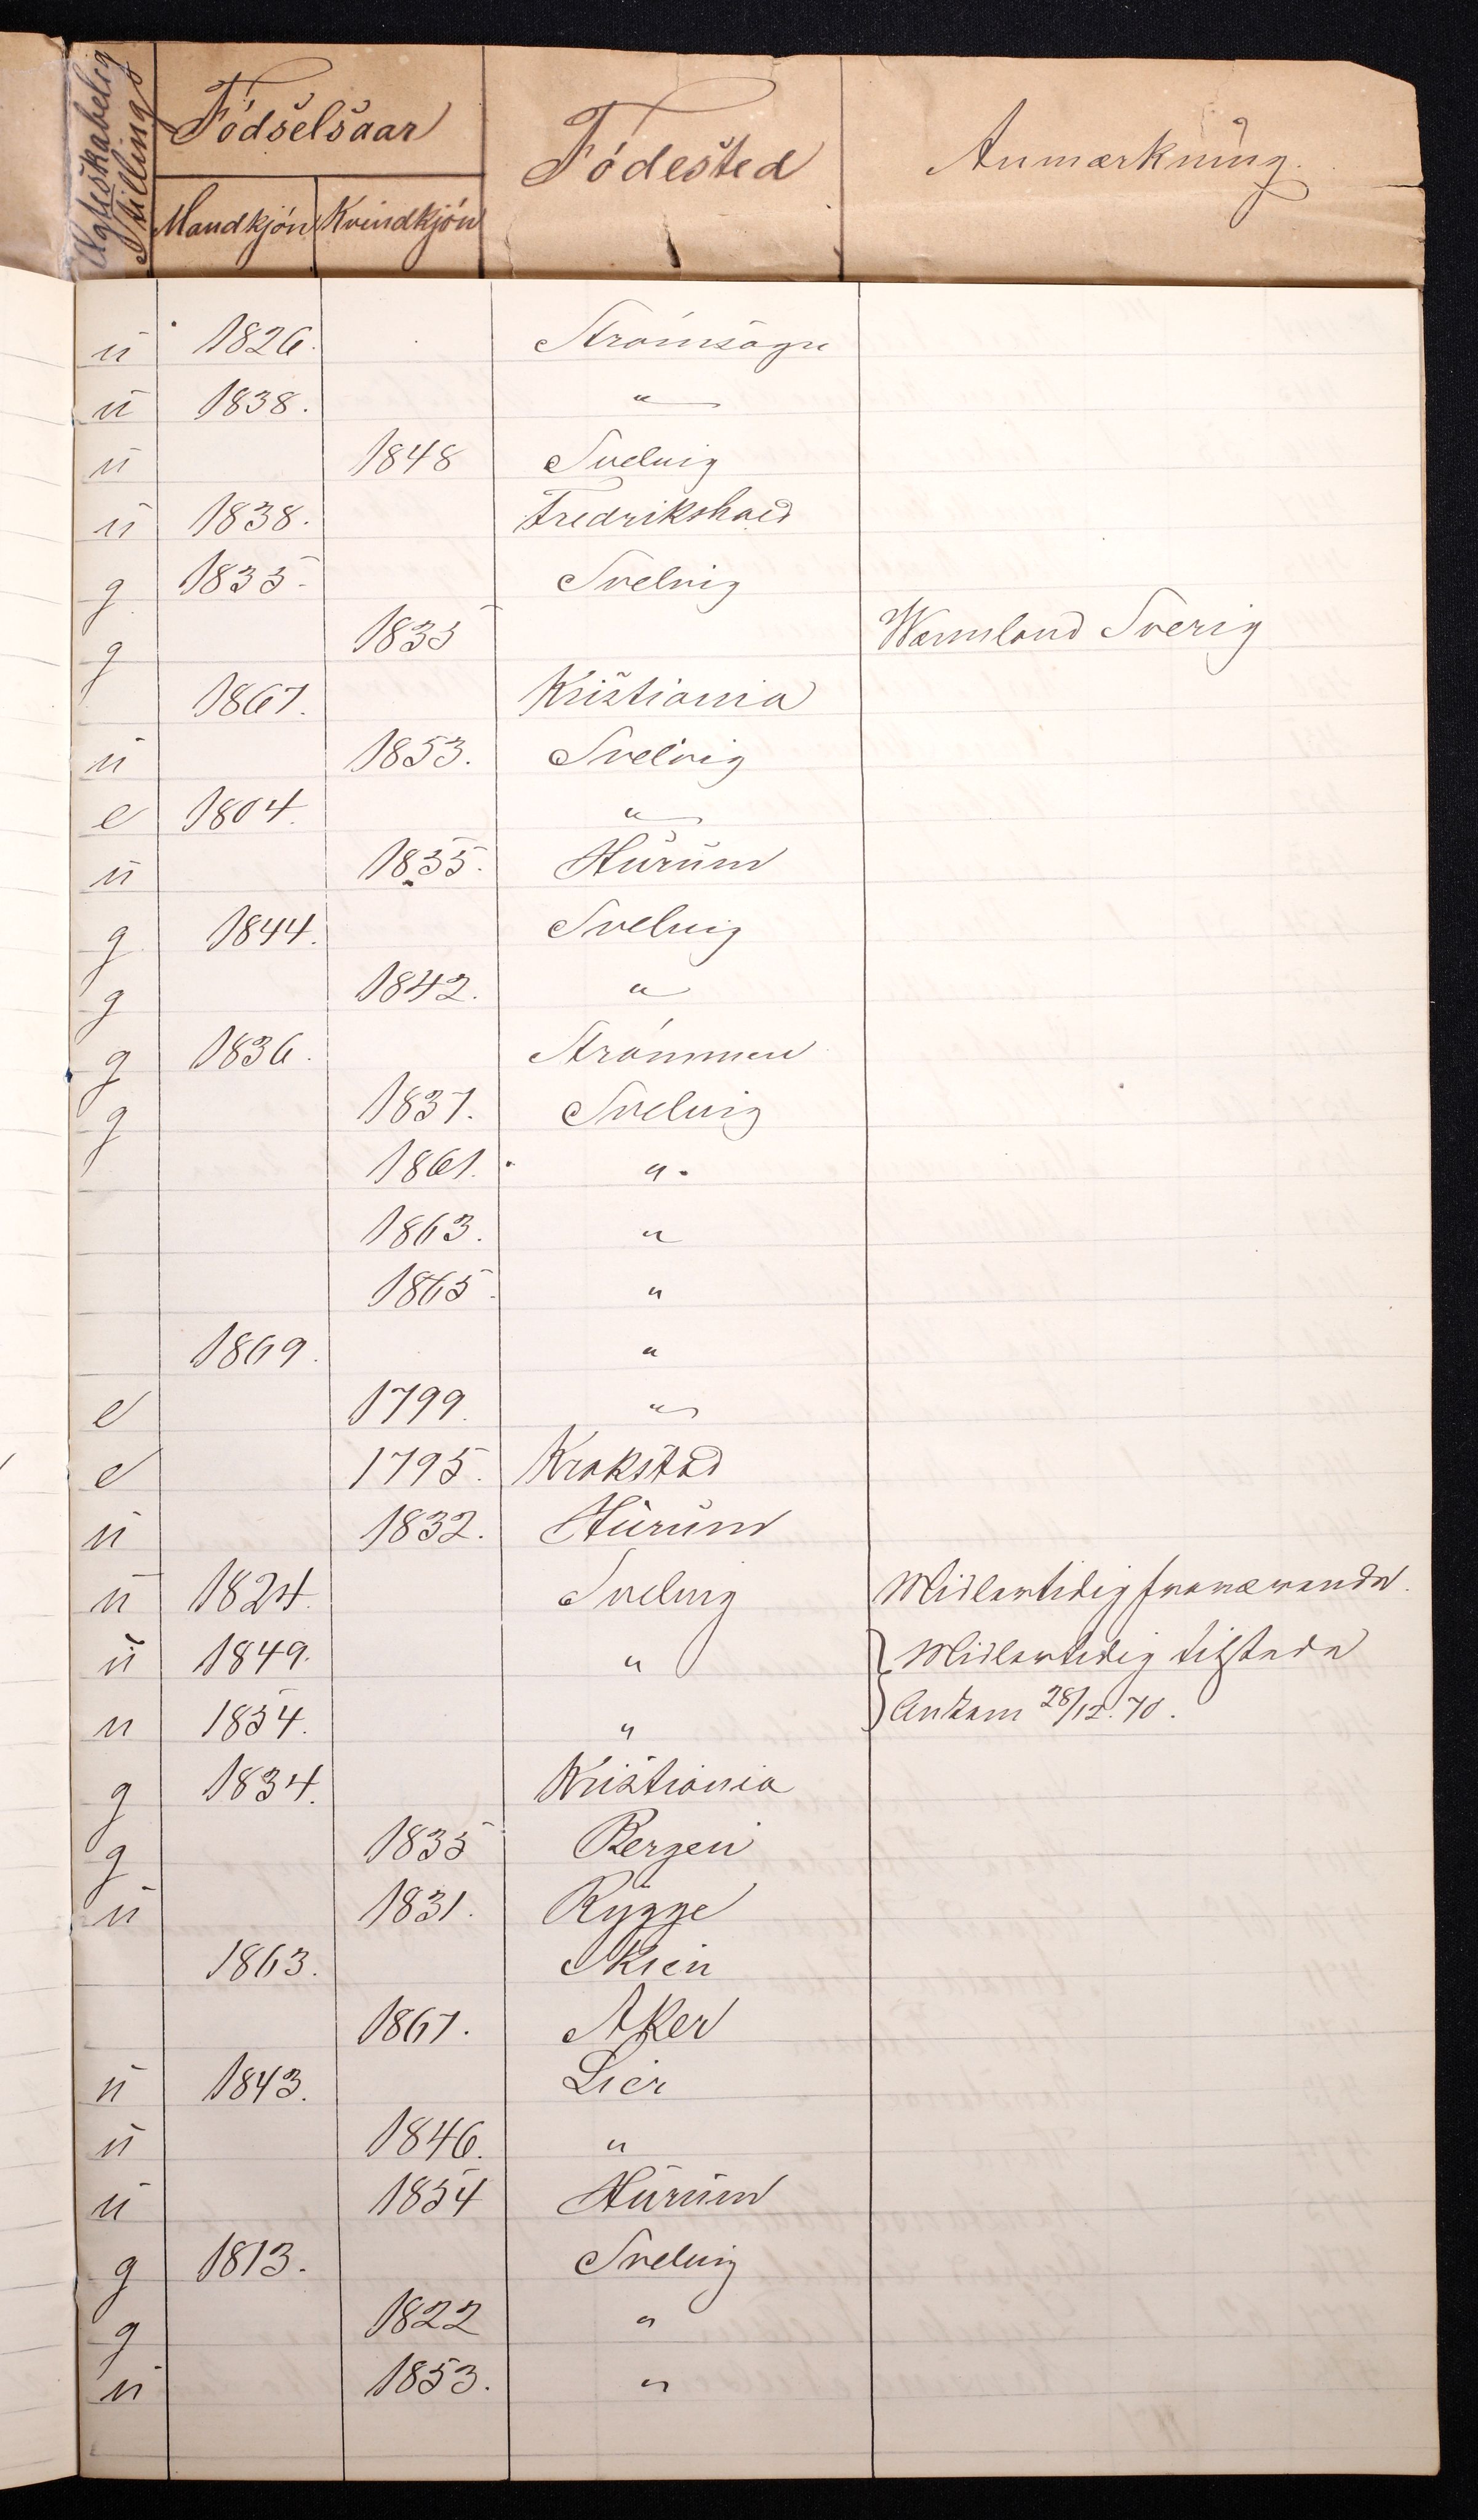 Ægteskabelig Stilling Fødselsaar Fødested Anmærkning.
Mandkjøn Kvindkjøn
u 1826. Strømsögn
u 1838. "
u 1848 Svelvig
u 1838. Fredrikshald
g 1835. Svelvig
g 1835 Warmland Sverig
1867. Kristiania
u 1853. Svelvig
e 1804. "
u 1835. Hurum
g 1844. Svelvig
g 1842. "
g 1836. Strømmen
g 1837. Svelvig
1861. "
1863. "
1865. "
1869. "
e 1799. "
e 1795. Krokstad
u 1832. Hurum
u 1824. Svelvig Midlertidig fraværende.
u 1849. " Midlertidig tilstede
u 1854. " Ankom 28/12.70.
g 1834. Kristiania
g 1835 Bergen
u 1831. Rygge
1863. Skien
1867. Aker
u 1843. Lier
u 1846. "
u 1854 Hurum
g 1813. Svelvig
g 1822 "
u 1853. "